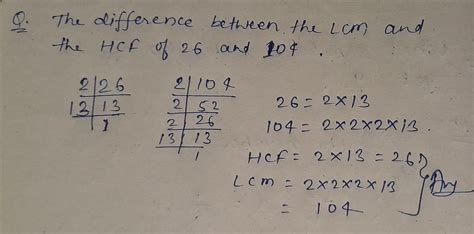 Q. The difference between the LCM and
the HCF of 26 and 104 .
2 | 26
13 | 13
1
2 | 104
2 | 52
2 | 26
13 | 13
1
26 = 2×13
104 = 2×2×2×13 .
HCF = 2×13 = 26
LCM = 2×2×2×13
= 104
Ans